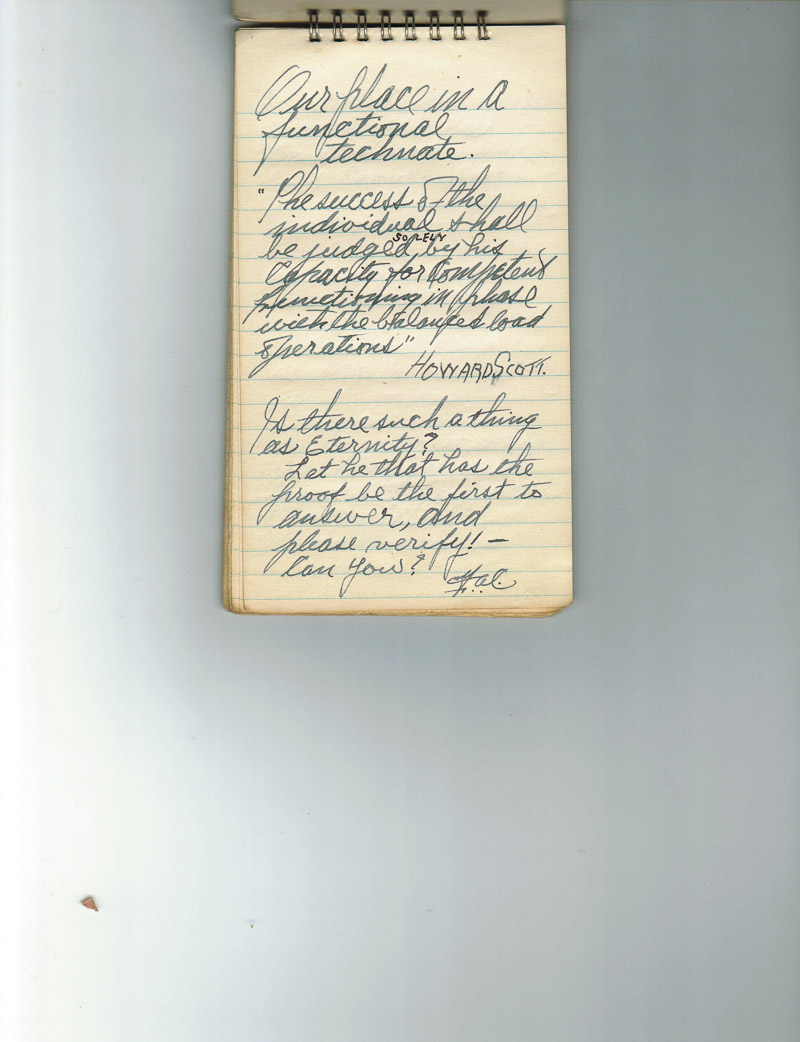 Our place in a
functional
technate.
"The success of the
individual shall
SOLELY
be judged by his
Capacity for Competent
functioning in phase
with the balanced load
operations"
HOWARD SCOTT.
Is there such a thing
as Eternity?
Let he that has the
proof be the first to
answer, and
please verify! —
Can You?
Hal.